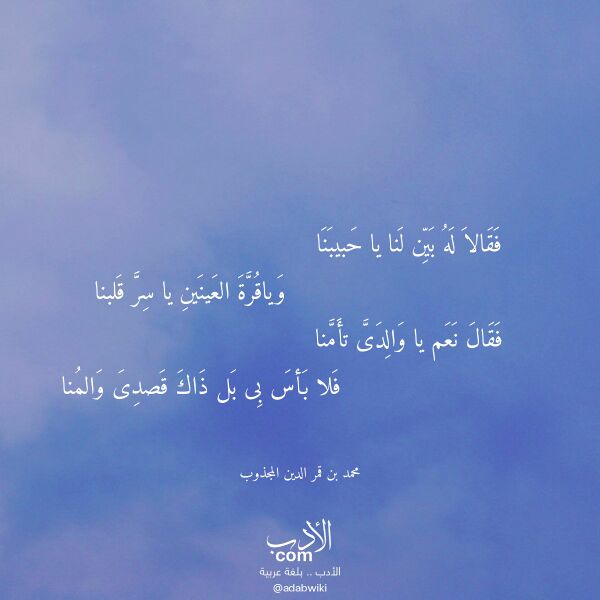 فَقَالاَ لَهُ بَيِّن لَنا يا حَبيبَنَا
وَياقُرَّةَ العَينَينِ يا سِرَّ قَلبنا
فَقَالَ نَعَم يا وَالِدَىَّ تأَمَّنا
فَلا بَأسَ بِى بَل ذَاكَ قَصدِىَ وَالمُنا
محمد بن قمر الدين المجذوب
الأدب
com
الأدب .. بلغة عربية
@adabwiki